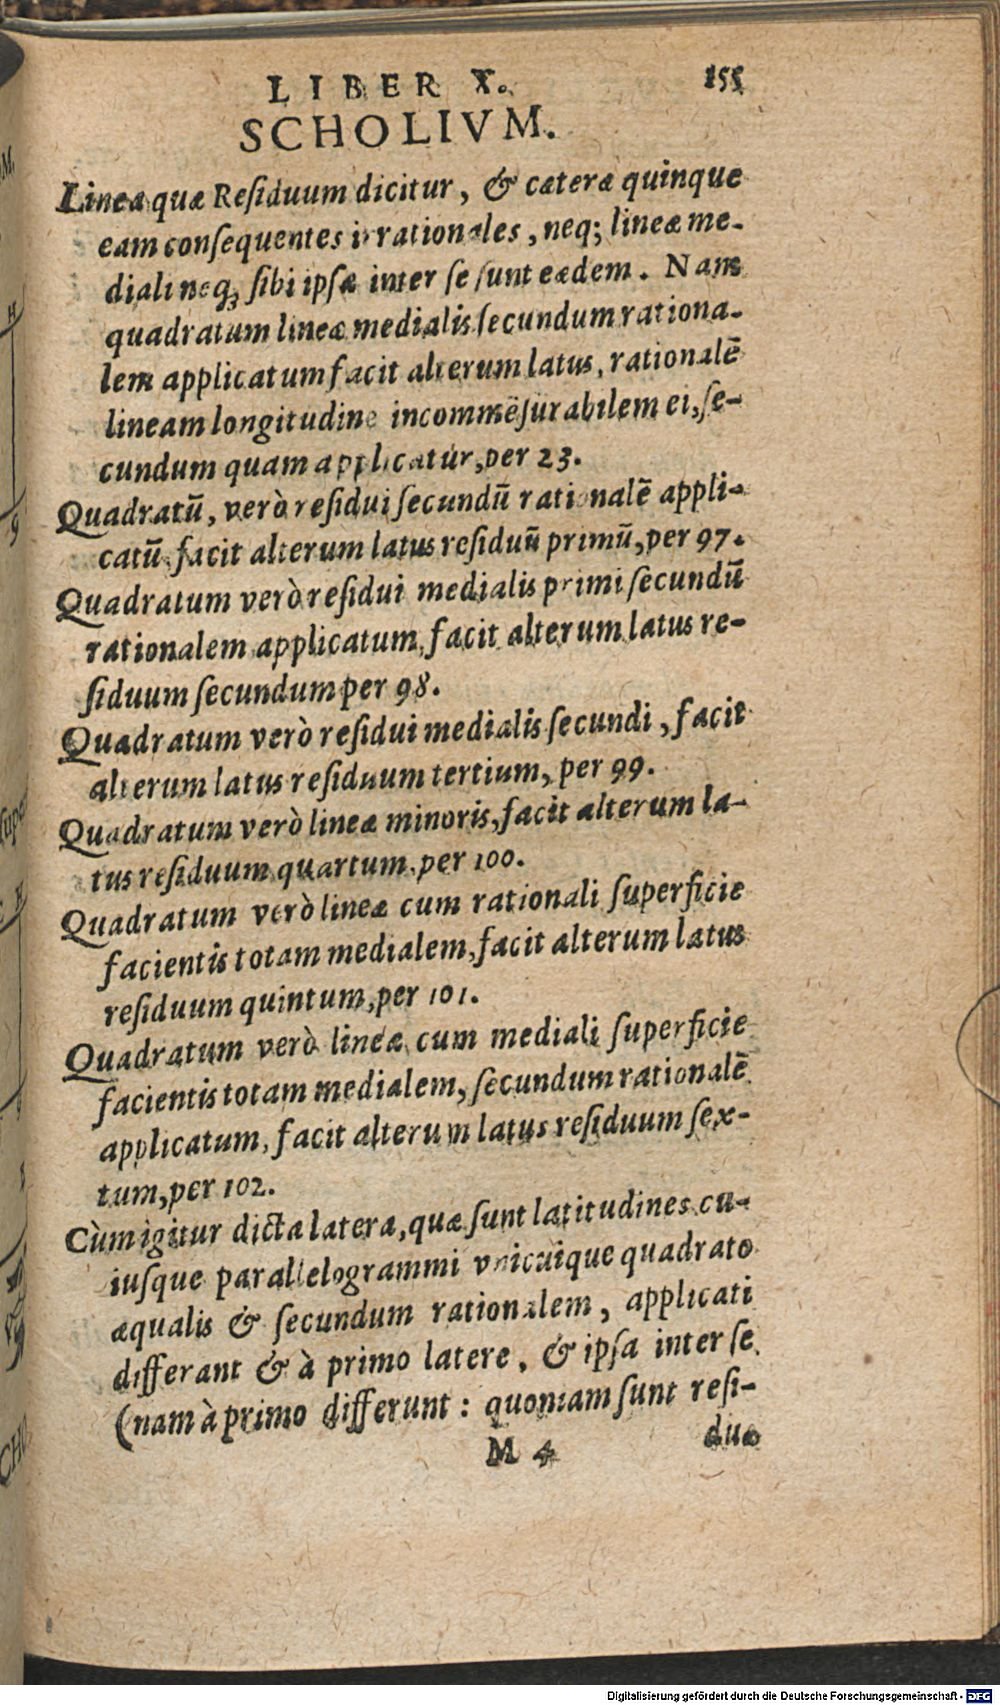 LIBER X. 155
SCHOLIVM.
Lineaquæ Residuum dicitur, & cæteræ quinque
eam consequentes irrationales, neq; lineæ me-
diali neq; sibi ipsæ inter se sunt eædem. Nam
quadratum lineæ medialis secundum rationa-
lem applicatum facit alterum latus, rationalē
lineam longitudine incommēsurabilem ei, se-
cundum quam applicatur, per 23.
Quadratū, verò residui secundū rationalē appli-
catū facit alterum latus residuū primū, per 97.
Quadratum verò residui medialis primi secundū
rationalem applicatum, facit alterum latus re-
siduum secundum per 98.
Quadratum verò residui medialis secundi, facit
alterum latus residuum tertium, per 99.
Quadratum verò lineæ minoris, facit alterum la-
tus residuum quartum, per 100.
Quadratum verò lineæ cum rationali superficie
facientis totam medialem, facit alterum latus
residuum quintum, per 101.
Quadratum verò lineæ cum mediali superficie
facientis totam medialem, secundum rationalē
applicatum, facit alterum latus residuum sex-
tum, per 102.
Cùm igitur dicta latera, quæ sunt latitudines cu-
iusque parallelogrammi vnicuique quadrato
æqualis & secundum rationalem, applicati
differant & à primo latere, & ipsa inter se
(nam à primo differunt: quoniam sunt resi-
M 4 dua
M,
H
9
super
H
9
CHO
Digitalisierung gefördert durch die Deutsche Forschungsgemeinschaft - DFG